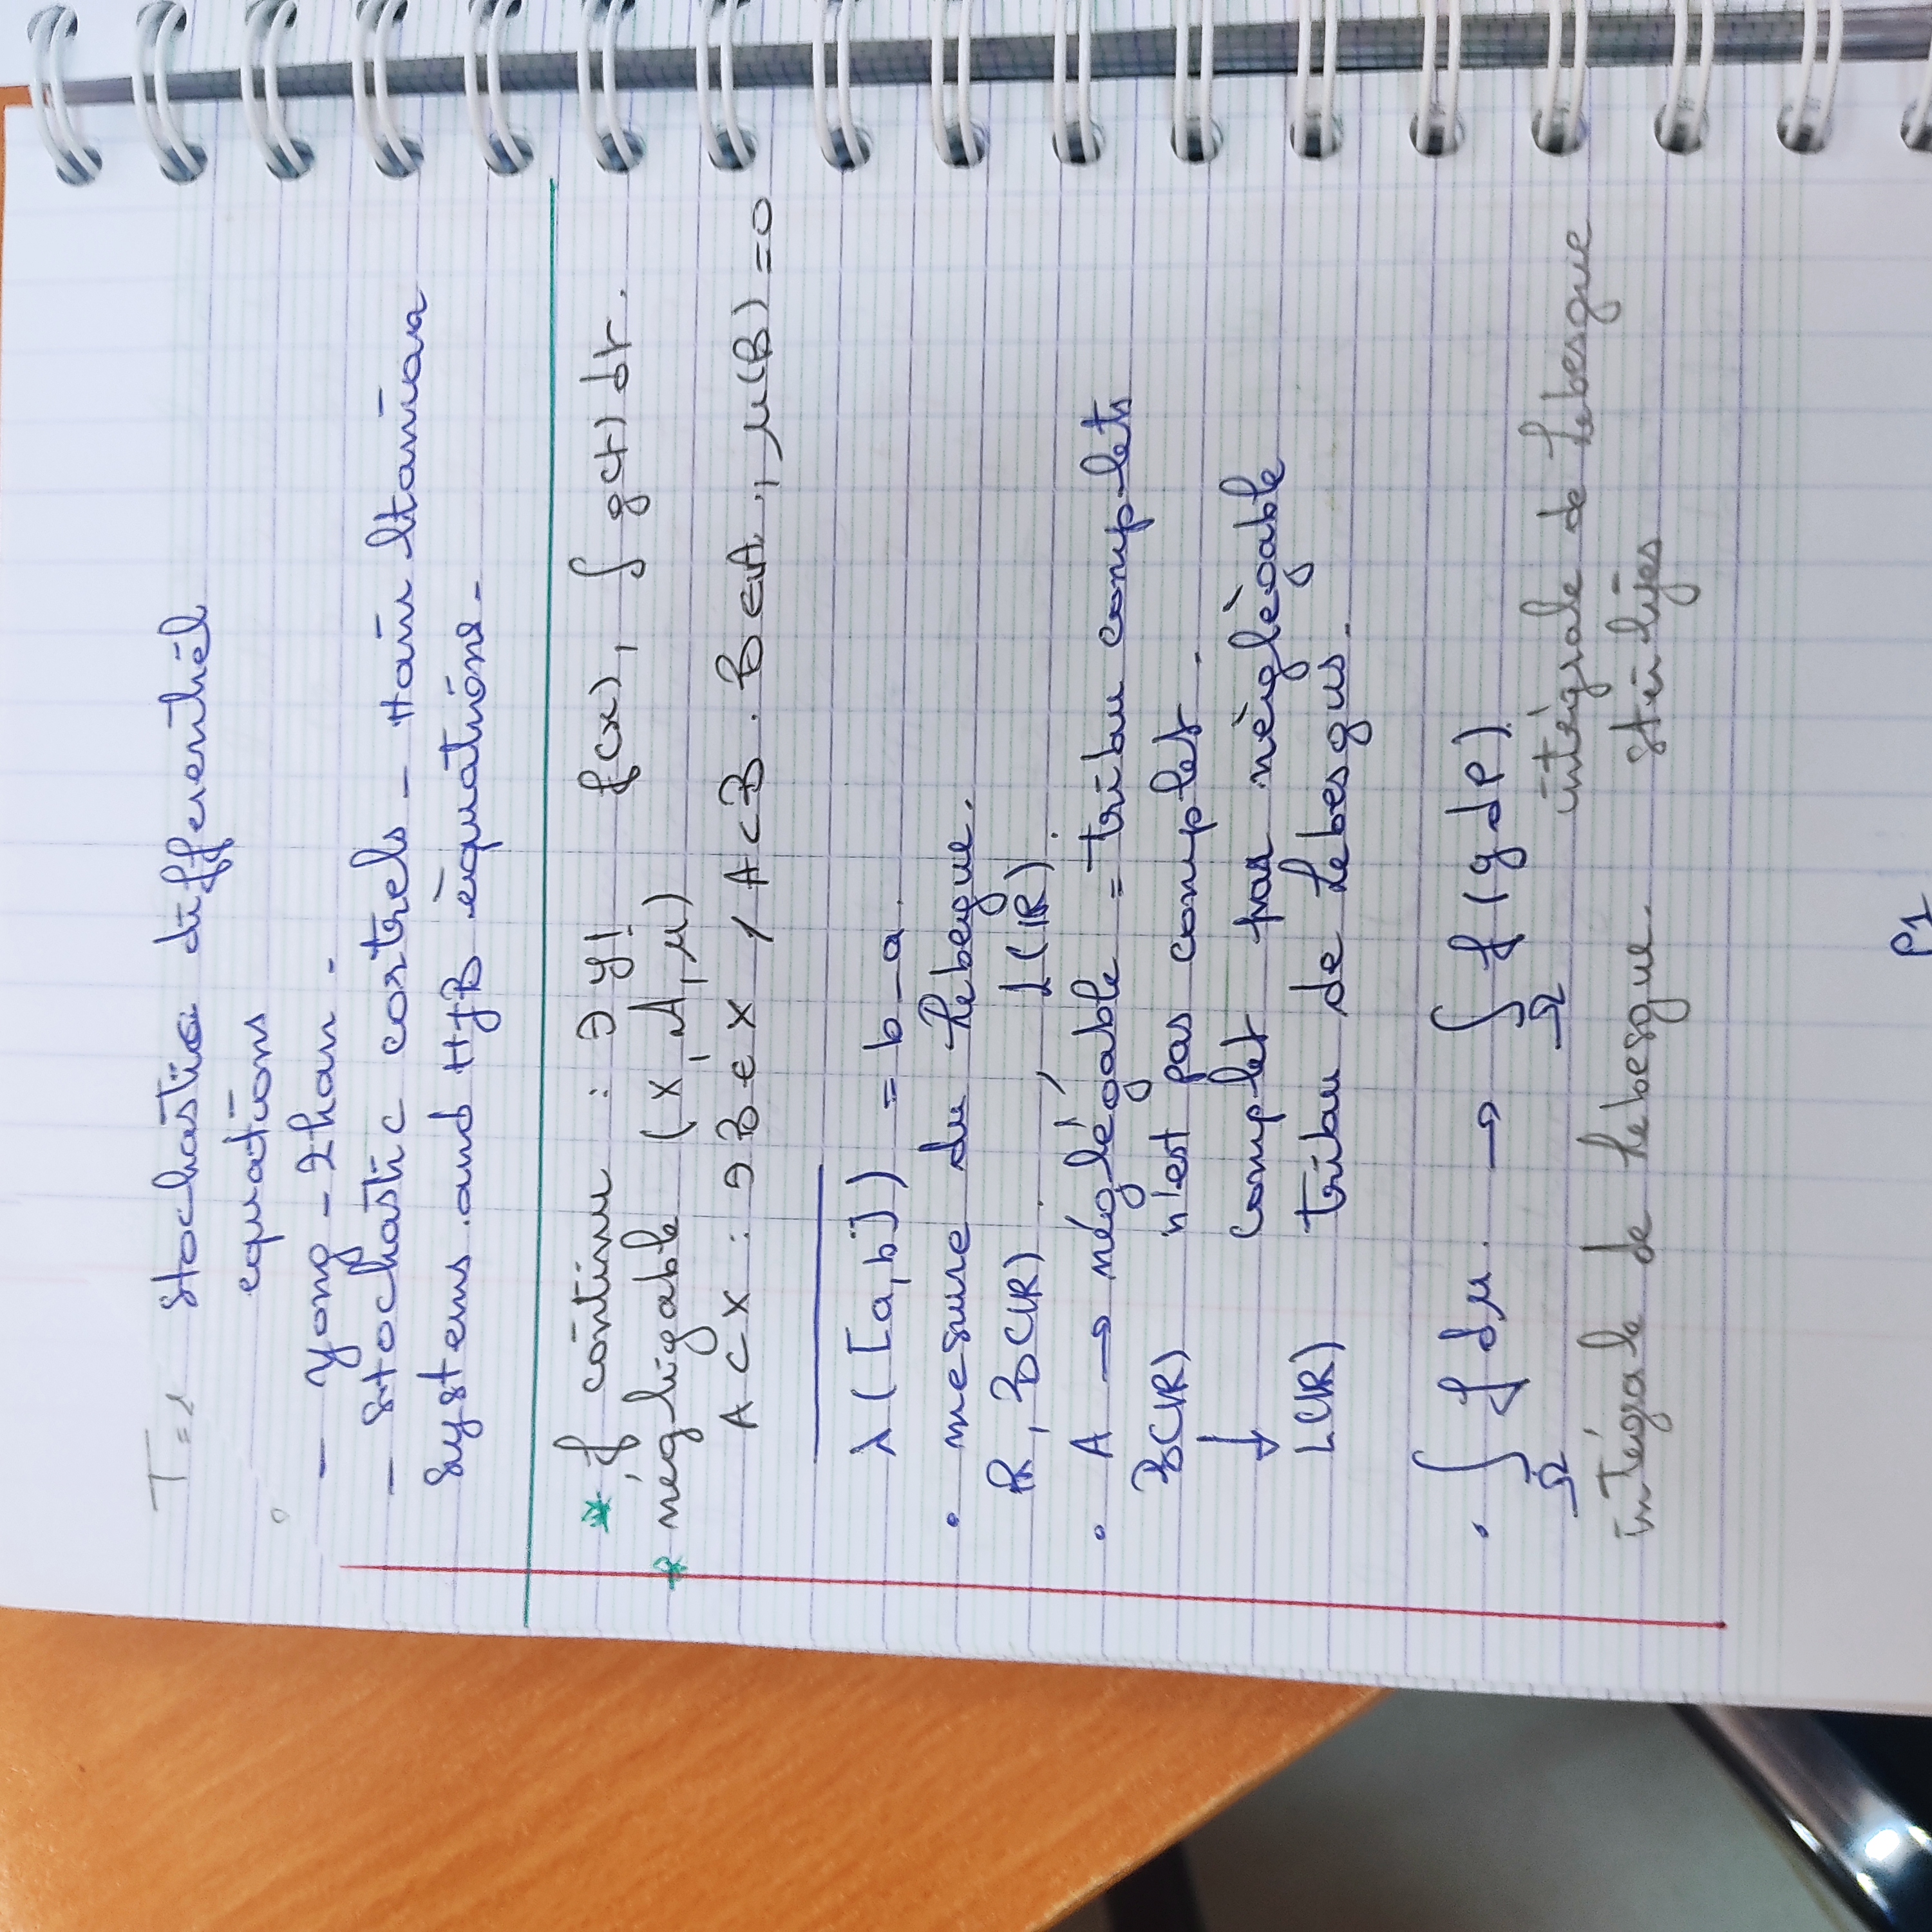 T=1 Stochastic differentiel
equations
- Yong - Zhan -
- Stochastic controls - Hamiltonian
Systems and HJB équations -
* f continu : ∃ y! f(x), ∫ g(t) dt.
* négligable (X, A, μ)
A ⊂ X : ∃ B ∈ X / A ⊂ B . B ∈ A , μ(B) = 0
λ([a,b]) = b - a.
• mesure du Lebesgue.
R, B(IR) . , L(IR).
• A → néglégable = tribu complets
B(IR) n'est pas complet.
↓ complet par néglégable
L(IR) tribu de Lebesgus.
• ∫ f dμ. → ∫ f (g dP)
Ω Ω
intégrale de Lebesgue
intégrale de Lebesgue. stieljes
P1